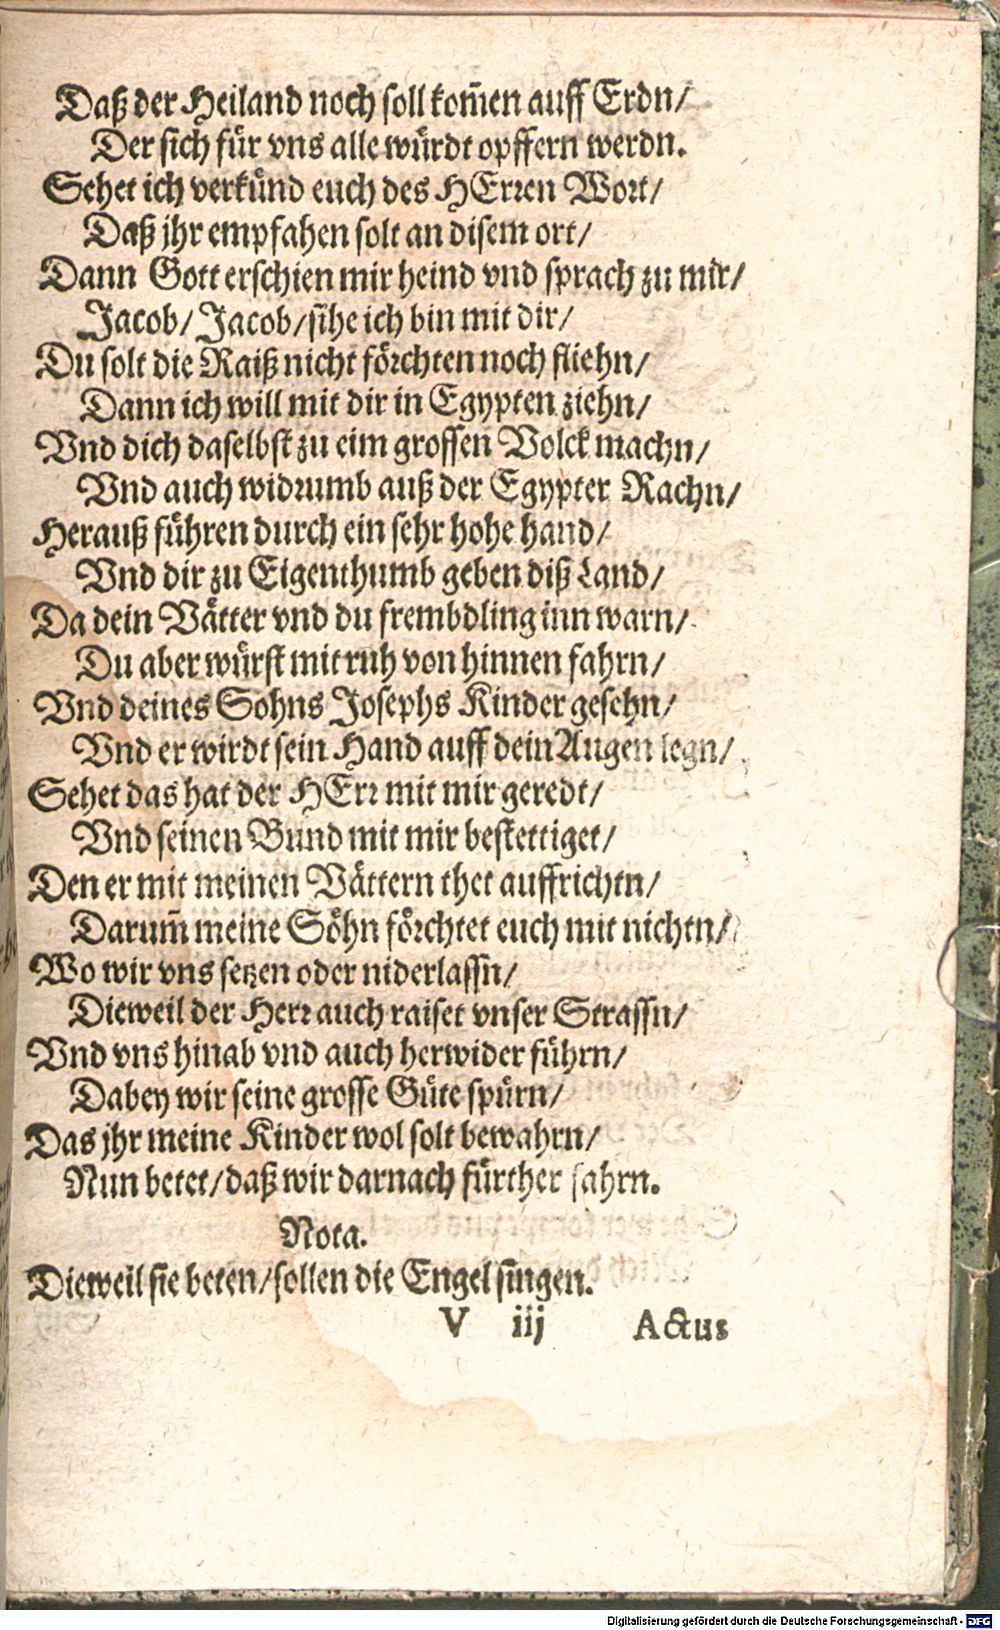 Daß der Heiland noch soll kom̃en auff Erdn/
Der sich für vns alle würdt opffern werdn.
Sehet ich verkünd euch des HErren Wort/
Daß jhr empfahen solt an disem ort/
Dann Gott erschien mir heind vnd sprach zu mir/
Jacob/ Jacob/ sihe ich bin mit dir/
Du solt die Raiß nicht förchten noch fliehn/
Dann ich will mit dir in Egypten ziehn/
Vnd dich daselbst zu eim grossen Volck machn/
Vnd auch widrumb auß der Egypter Rachn/
Herauß führen durch ein sehr hohe hand/
Vnd dir zu Eigenthumb geben diß Land/
Da dein Vätter vnd du frembdling inn warn/
Du aber würst mit ruh von hinnen fahrn/
Vnd deines Sohns Josephs Kinder gesehn/
Vnd er wirdt sein Hand auff dein Augen legn/
Sehet das hat der HErr mit mir geredt/
Vnd seinen Bund mit mir bestettiget/
Den er mit meinen Vättern thet auffrichtn/
Darum̃ meine Söhn förchtet euch mit nichtn/
Wo wir vns setzen oder niderlassn/
Dieweil der Herr auch raiset vnser Strassn/
Vnd vns hinab vnd auch herwider führn/
Dabey wir seine grosse Güte spürn/
Das jhr meine Kinder wol solt bewahrn/
Nun betet/ daß wir darnach fürther fahrn.
Nota.
Dieweil sie beten/ sollen die Engel singen.
V iij Actus
Digitalisierung gefördert durch die Deutsche Forschungsgemeinschaft - DFG